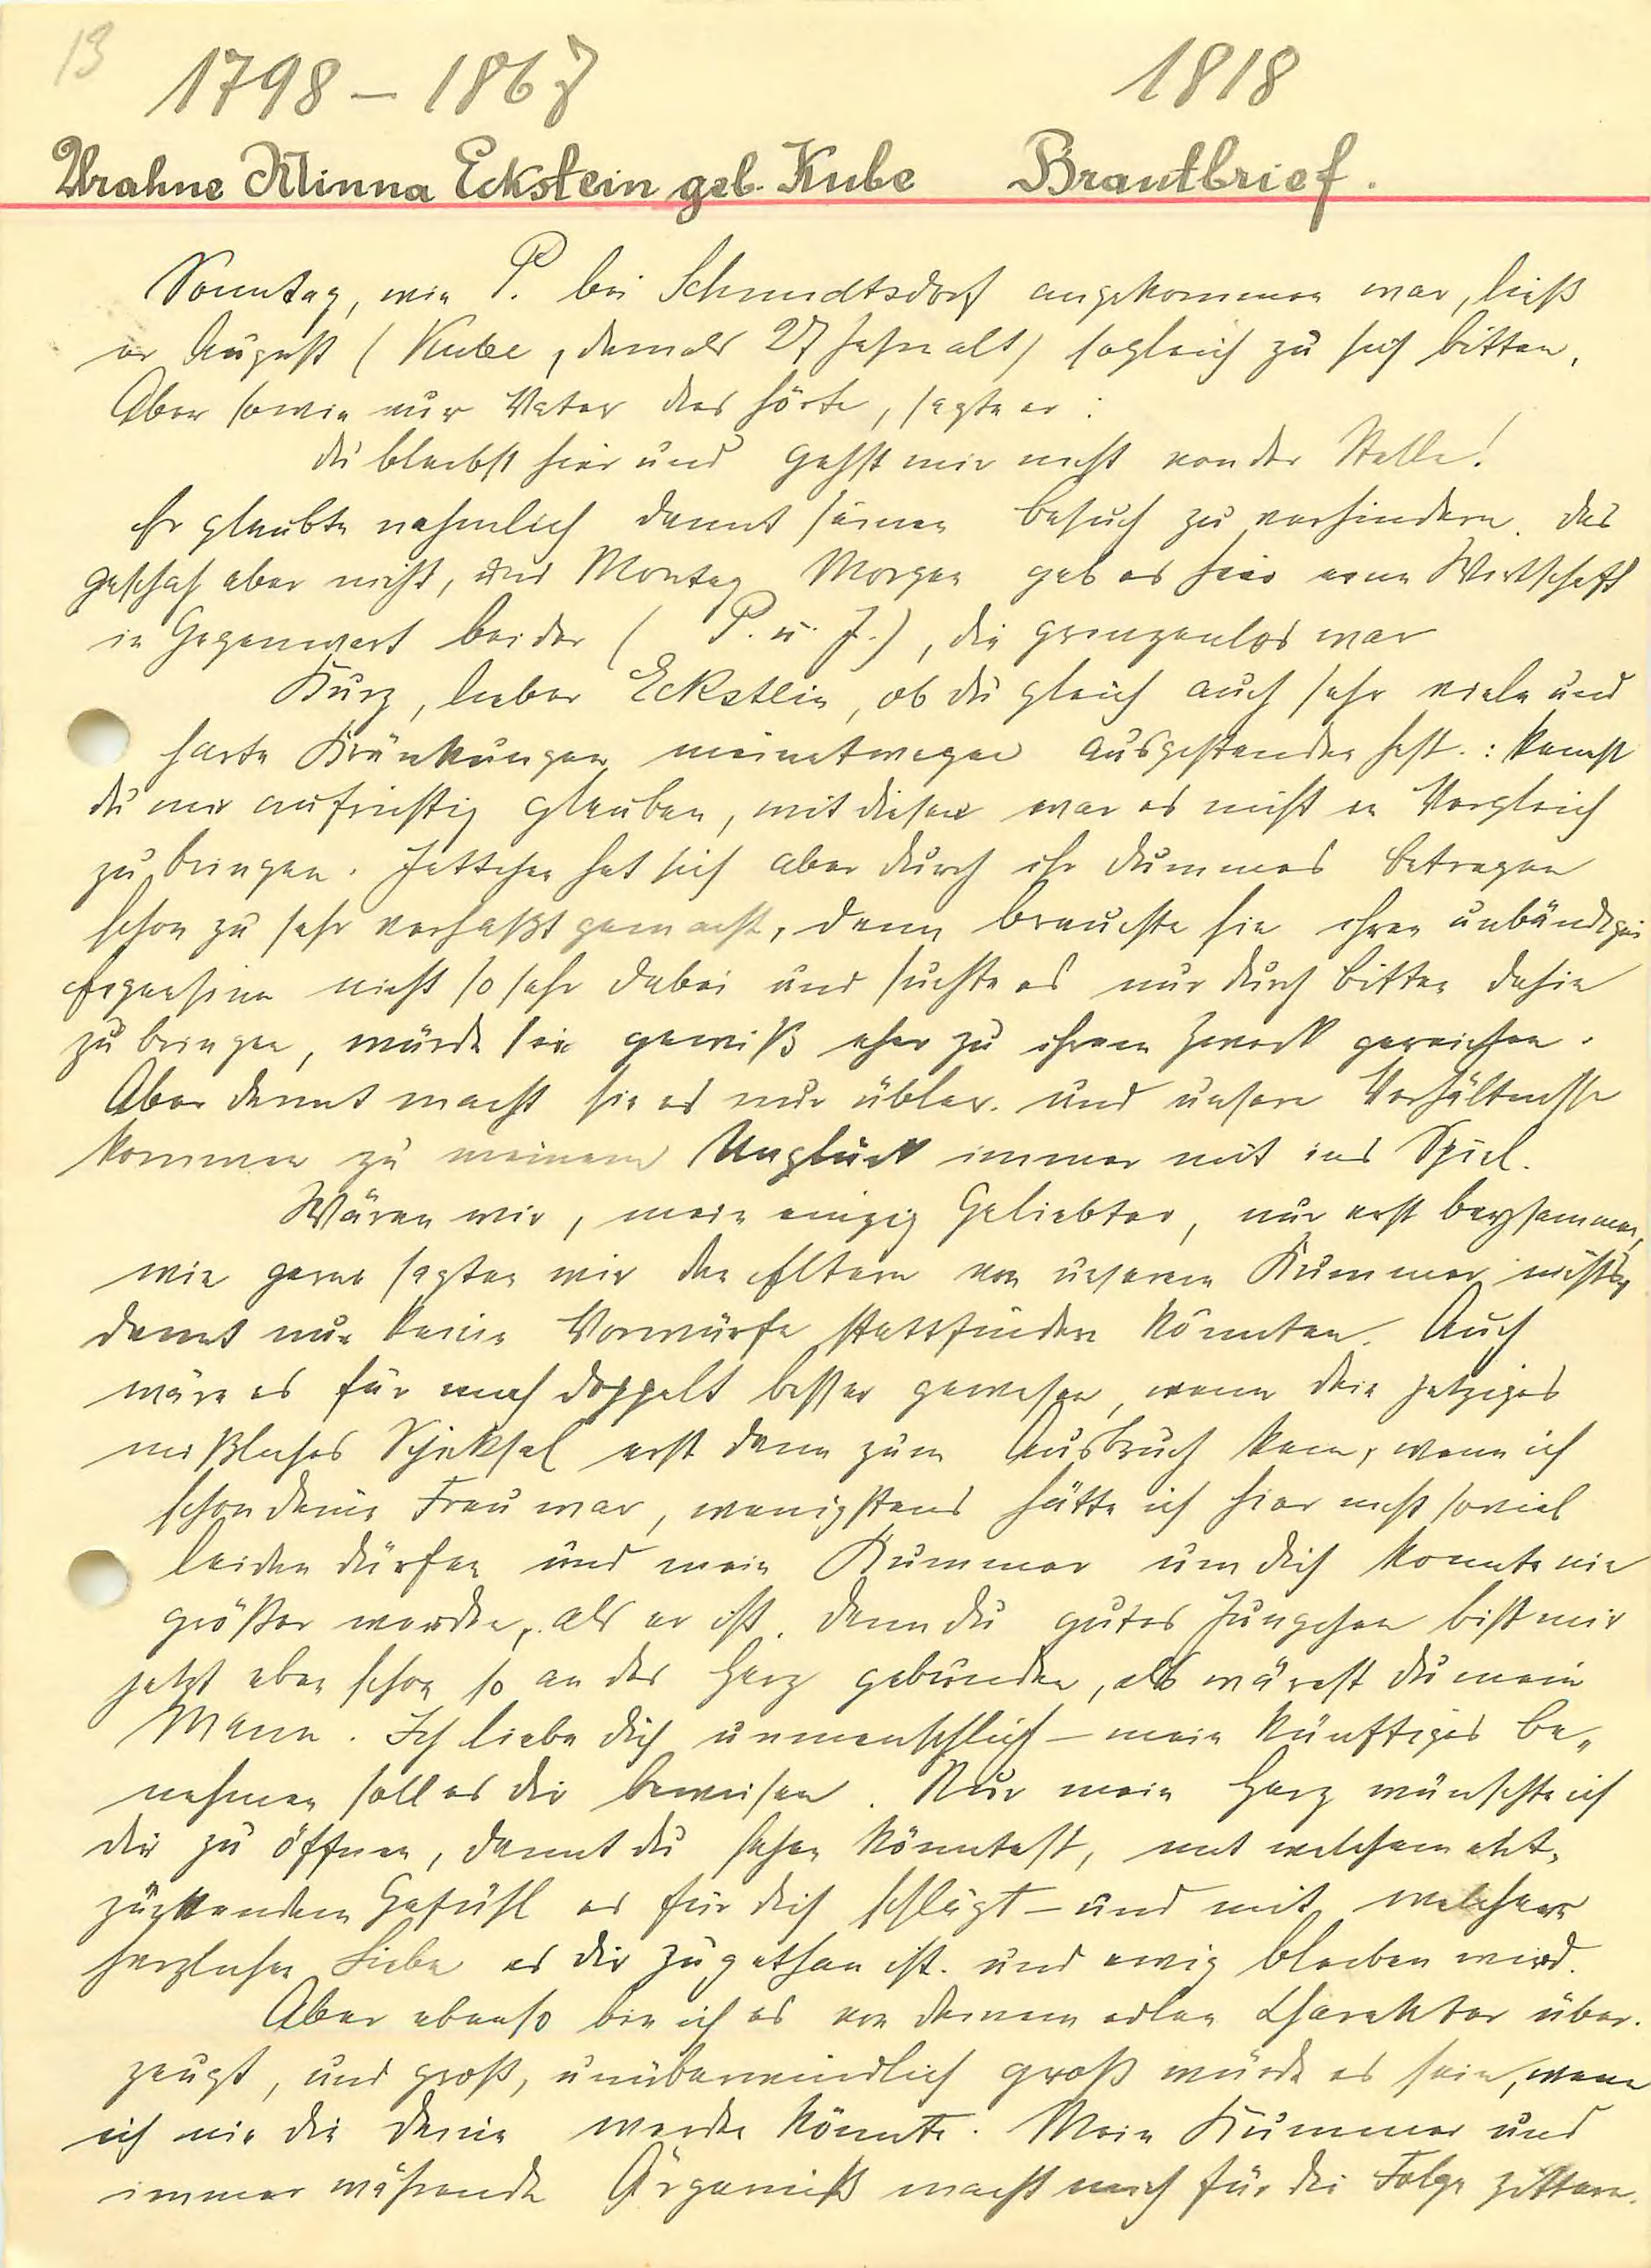 13
1798 – 1867
1818
Urahne Minna Eckstein geb. Kube Brautbrief.
Sonntag, wie P. bei Schmidtsdorf angekommen war, ließ
er August (Kube, damals 27 Jahre alt) sogleich zu sich bitten.
Aber sowie nur Vater das hörte, sagte er:
du bleibst hier und gehst mir nicht von der Stelle!
Er glaubte nehmlich damit seinen Besuch zu verhindern. Das
geschah aber nicht, und Montag Morgen gab es hier eine Wirtschaft
in Gegenwart beider (P. u. J.), die grenzenlos war
Kurz, lieber Eckstein, ob du gleich auch sehr viele und
harte Kränkungen meinetwegen ausgestanden hast.: kannst
du mir aufrichtig glauben, mit diesen war es nicht in Vergleich
zu bringen. Jettchen hat sich aber durch ihr dummes Betragen
schon zu sehr verhaßt gemacht, denn brauchte sie ihren unbändigen
Eigensinn nicht so sehr dabei und suchte es nur durch Bitten dahin
zu bringen, würde sie gewiß eher zu ihrem Zweck gereichen.
Aber damit macht sie es nur übler. und unsere Verhältnisse
kommen zu meinem Unglück immer mit ins Spiel.
Wären wir, mein einzig Geliebter, nur erst beysammen,
wie gerne sagten wir den Eltern von unserem Kummer nichts,
damit nur keine Vorwürfe stattfinden könnten. Auch
wäre es für mich doppelt besser gewesen, wenn dein jetziges
mißliches Schicksal erst dann zum Ausbruch kam, wenn ich
schon deine Frau war, wenigstens hätte ich hier nicht soviel
leiden dürfen und mein Kummer um dich konnte nie
größer werden, als er ist. Denn du gutes Jungchen bist mir
jetzt eben schon so an das Herz gebunden, als wärest du mein
Mann. Ich liebe dich unmenschlich – mein künftiges Be„
nehmen soll es dir beweisen. Nur mein Herz wünschte ich
dir zu öffnen, damit du sehen könntest, mit welchem ent-
zückenden Gefühl es für dich schlägt – und mit welcher
herzlichen Liebe es dir zugethan ist. und ewig bleiben wird.
Aber ebenso bin ich es von deinem edlen Charakter über-
zeugt, und groß, unüberwindlich groß würde es sein, wenn
ich nie die Deine werden könnte. Mein Kummer und
immer währende Ärgerniß macht mich für die Folge zittern.